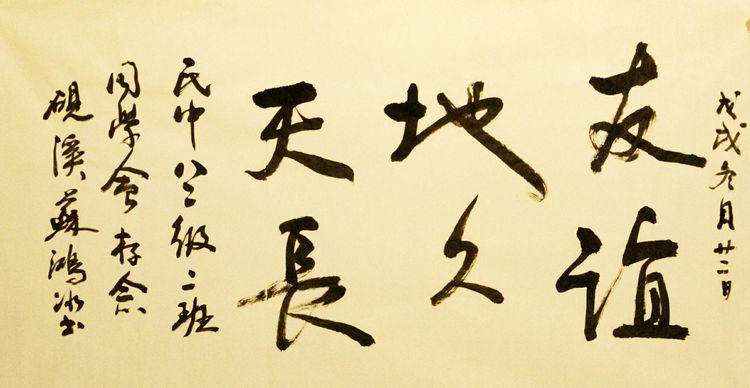 戊戌冬月廿二日
友谊
地久
天長
民中八二级二班
同學會存念
硯溪蘇鴻冰书